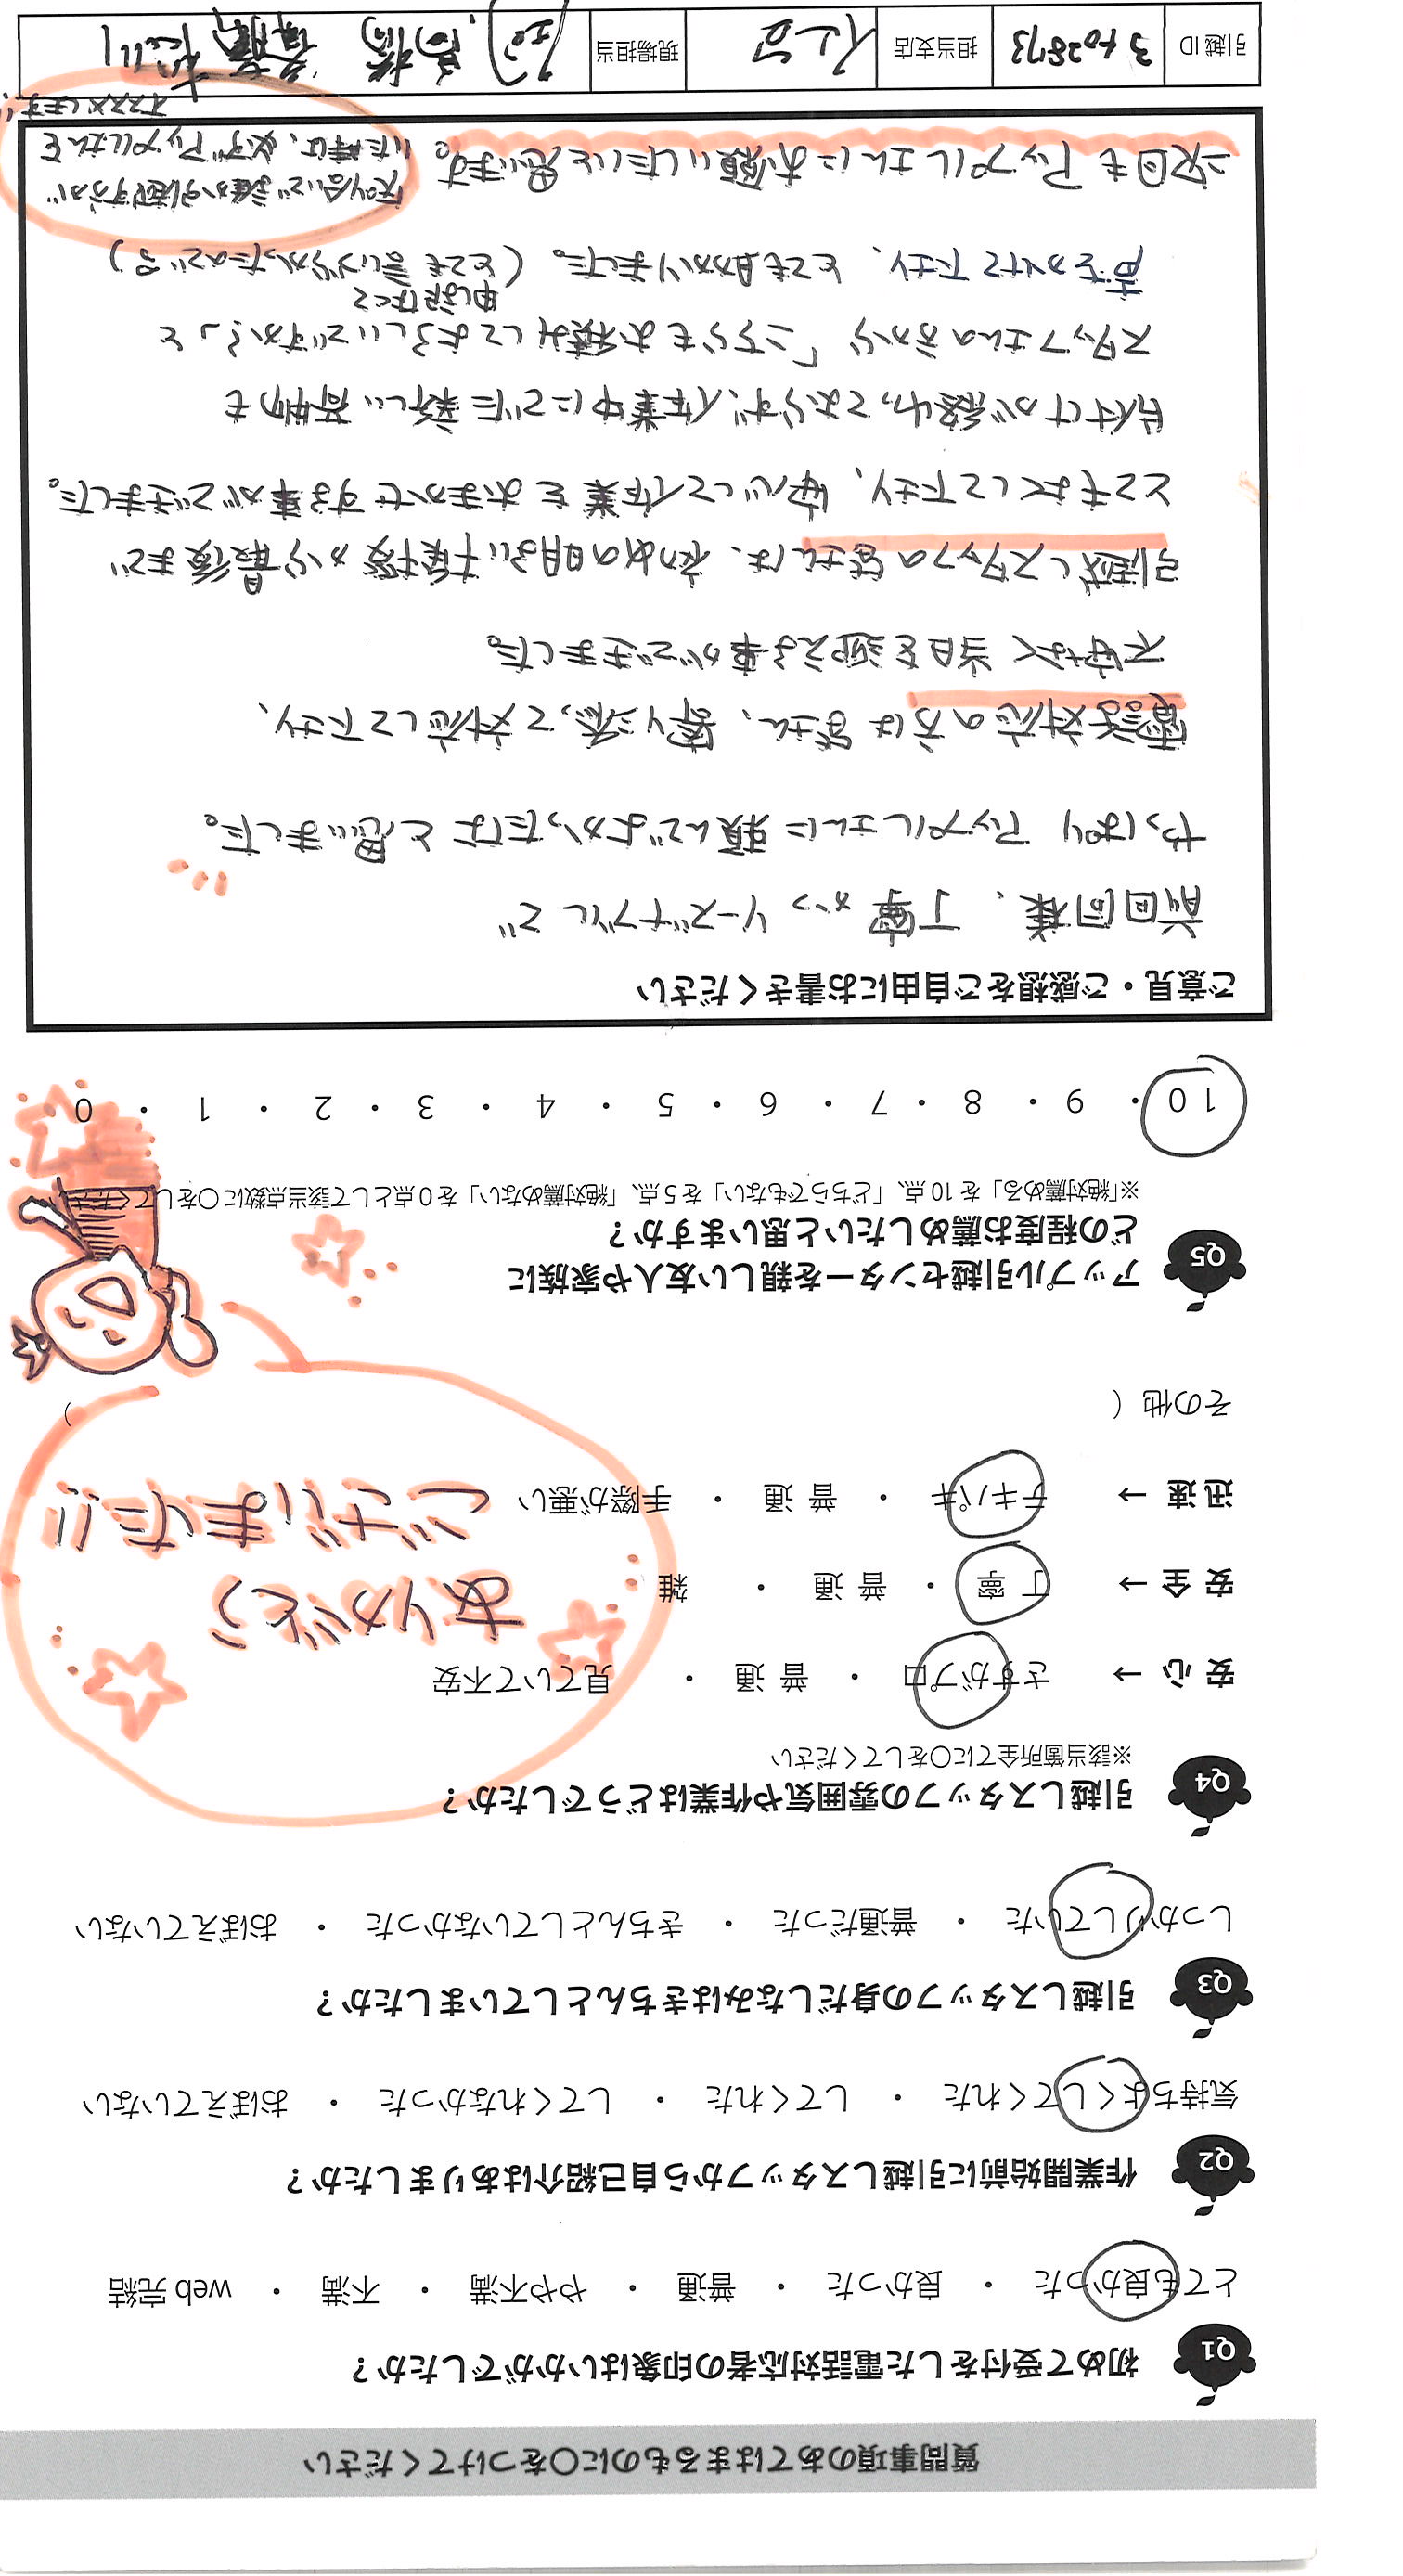 質問事項のあてはまるものに〇をつけてください
Q1 初めて受付をした電話対応者の印象はいかがでしたか？
とても良かった ・ 良かった ・ 普通 ・ やや不満 ・ 不満 ・ web 完結
Q2 作業開始前に引越しスタッフから自己紹介はありましたか？
気持ちよくしてくれた ・ してくれた ・ してくれなかった ・ おぼえていない
Q3 引越しスタッフの身だしなみはきちんとしていましたか？
しっかりしていた ・ 普通だった ・ きちんとしていなかった ・ おぼえていない
Q4 引越しスタッフの雰囲気や作業はどうでしたか？
※該当箇所全てに〇をしてください
安 心 → さすがプロ ・ 普 通 ・ 見ていて不安
安 全 → 丁 寧 ・ 普 通 ・ 雑
迅 速 → テキパキ ・ 普 通 ・ 手際が悪い
その他（ ）
ありがとう
ございました!!
Q5 アップル引越センターを親しい友人や家族に
どの程度お薦めしたいと思いますか？
※「絶対薦める」を 10 点、「どちらでもない」を 5 点、「絶対薦めない」を 0 点として該当点数に〇をしてください
10 ・ 9 ・ 8 ・ 7 ・ 6 ・ 5 ・ 4 ・ 3 ・ 2 ・ 1 ・ 0
ご意見・ご感想をご自由にお書きください
前回同様、丁寧かつリーズナブルで
やっぱりアップルさんに頼んでよかったなと思いました。
電話対応の方は皆さん、寄り添って対応して下さり、
不安なく当日を迎える事ができました。
引越しスタッフの皆さんは、初めの明るい挨拶から最後まで
とてもよくして下さり、安心して作業をおまかせする事ができました。
片付けが終わっておらず、作業中にでた新しい荷物も
スタッフさんの方から「こちらもお積みしてよろしいですか？」と
声をかけて下さり、とても助かりました。（とても言いづらかったので‥）
申し訳なくて
次回もアップルさんにお願いしたいと思います。
知り合いで誰か引越す方が
いた時は、必ずアップルさんを
オススメします!!
引越 ID 担当支店 仙台 現場担当 高橋 斉藤